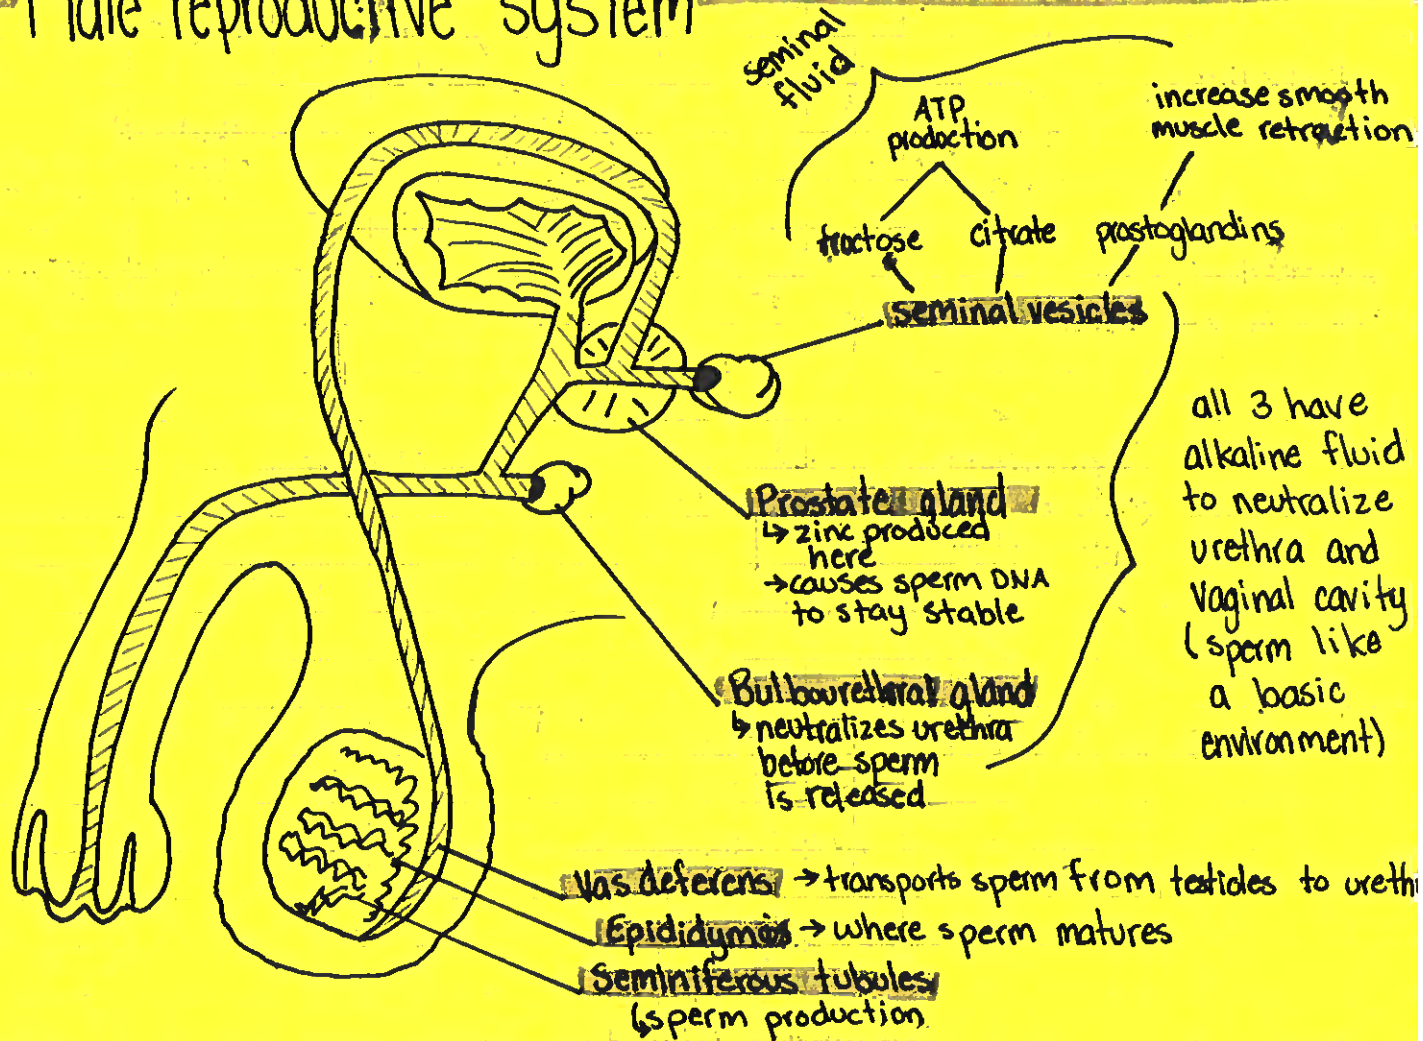 Male reproductive system
seminal
fluid
ATP
production
increase smooth
muscle retraction
fructose citrate prostoglandins
seminal vesicles
all 3 have
alkaline fluid
to neutralize
urethra and
vaginal cavity
(sperm like
a basic
environment)
Prostate gland
↳ zinc produced
here
→ causes sperm DNA
to stay stable
Bulbourethral gland
↳ neutralizes urethra
before sperm
is released
Vas deferens → transports sperm from testicles to urethr
Epididymis → where sperm matures
Seminiferous tubules
↳ sperm production